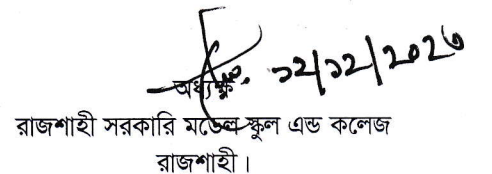 ১২/১২/২০২৩
অধ্যক্ষ
রাজশাহী সরকারি মডেল স্কুল এন্ড কলেজ
রাজশাহী।